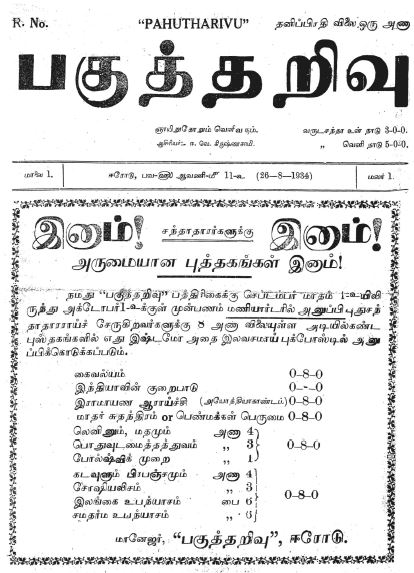 R. No. "PAHUTHARIVU" தனிப்பிரதி விலை, ஒரு அணா
பகுத்தறிவு
ஞாயிறுதோறும் வெளிவரும். வருடசந்தா உள் நாடு 3-0-0.
ஆசிரியர்:- ஈ. வெ. கிருஷ்ணசாமி. „ வெளி நாடு 5-0-0.
மாலை 1. ஈரோடு, பவ-௵ ஆவணி-௴ 11-உ (26-8-1934) மலர் 1.
இனாம்! சந்தாதாரர்களுக்கு இனாம்!
அருமையான புத்தகங்கள் இனாம்!
நமது "பகுத்தறிவு" பத்திரிகைக்கு செப்டம்பர் மாதம் 1-உயிலி
ருந்து அக்டோபர் 1-உக்குள் முன்பணம் மணியார்டரில் அனுப்பி புதுசந்
தாதாரராய்ச் சேருகிறவர்களுக்கு 8 அணா விலையுள்ள அடியில்கண்ட
புஸ்தகங்களில் எது இஷ்டமோ அதை இலவசமாய் புக்போஸ்டில் அனு
ப்பிக்கொடுக்கப்படும்.
கைவல்யம் 0-8-0
இந்தியாவின் குறைபாடு
இராமாயண ஆராய்ச்சி (அயோத்தியாகாண்டம்) 0-8-0
மாதர் சுதந்திரம் or பெண்மக்கள் பெருமை 0-8-0
லெனினும், மதமும் அணா 4
பொதுவுடமைத்தத்துவம் „ 3 0-8-0
போல்ஷ்விக் முறை „ 1
கடவுளும் பிரபஞ்சமும் அணா 4
சோஷியலிசம் „ 3
இலங்கை உபந்யாசம் பை 6 0-8-0
சமதர்ம உபந்யாசம் „ 6
மானேஜர், "பகுத்தறிவு", ஈரோடு.